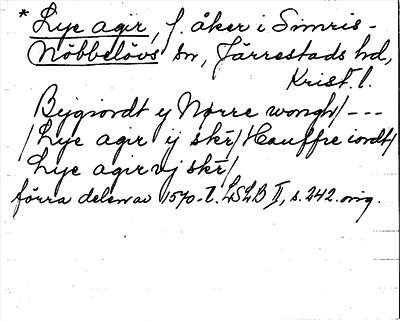 * Lye agir, f. åker i Simris-
Nöbbelövs sn, Järrestads hd,
Krist. l.
Bygiordt y Nørre wongh/ ---
/Lye agir ij skr̄/Hauffre iordt/
Lye agir vj skr̄/
förra delen av 1570-t. LSLB II, s. 242. orig.